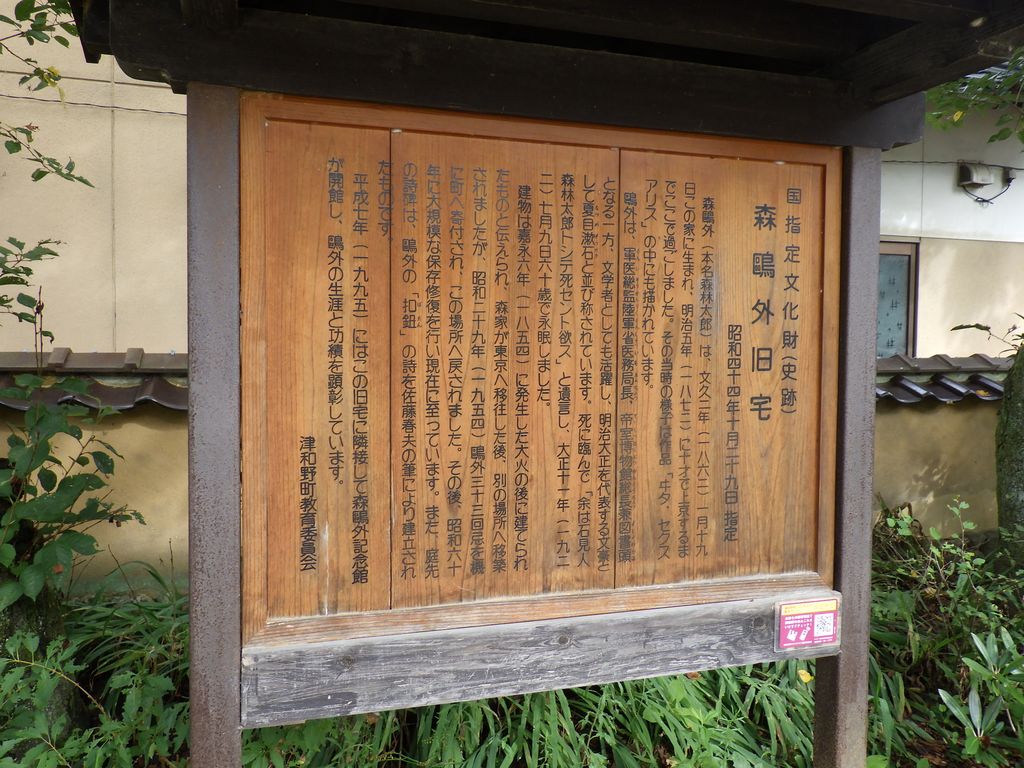 国指定文化財(史跡)
森鷗外旧宅
昭和四十四年十月二十九日指定
森鷗外(本名森林太郎)は、文久二年(一八六二)一月十九
日この家に生まれ、明治五年(一八七二)に十才で上京するま
でここで過ごしました。その当時の様子は作品『ヰタ、セクス
アリス』の中にも描かれています。
鷗外は、軍医総監陸軍省医務局長、帝室博物館総長兼図書頭
となる一方、文学者としても活躍し、明治大正を代表する文豪と
して夏目漱石と並び称されています。死に臨んで「余は石見人
森林太郎トシテ死セント欲ス」と遺言し、大正十一年(一九二
二)七月九日六十歳で永眠しました。
建物は嘉永六年(一八五四)に発生した大火の後に建てられ
たものと伝えられ、森家が東京へ移住した後、別の場所へ移築
されましたが、昭和二十九年(一九五四)鷗外三十三回忌を機
に町へ寄付され、この場所へ戻されました。その後、昭和六十
年に大規模な保存修復を行い現在に至っています。また、庭先
の詩碑は、鷗外の「扣鈕」の詩を佐藤春夫の筆により建立され
たものです。
平成七年(一九九五)にはこの旧宅に隣接して森鷗外記念館
が開館し、鷗外の生涯と功績を顕彰しています。
津和野町教育委員会